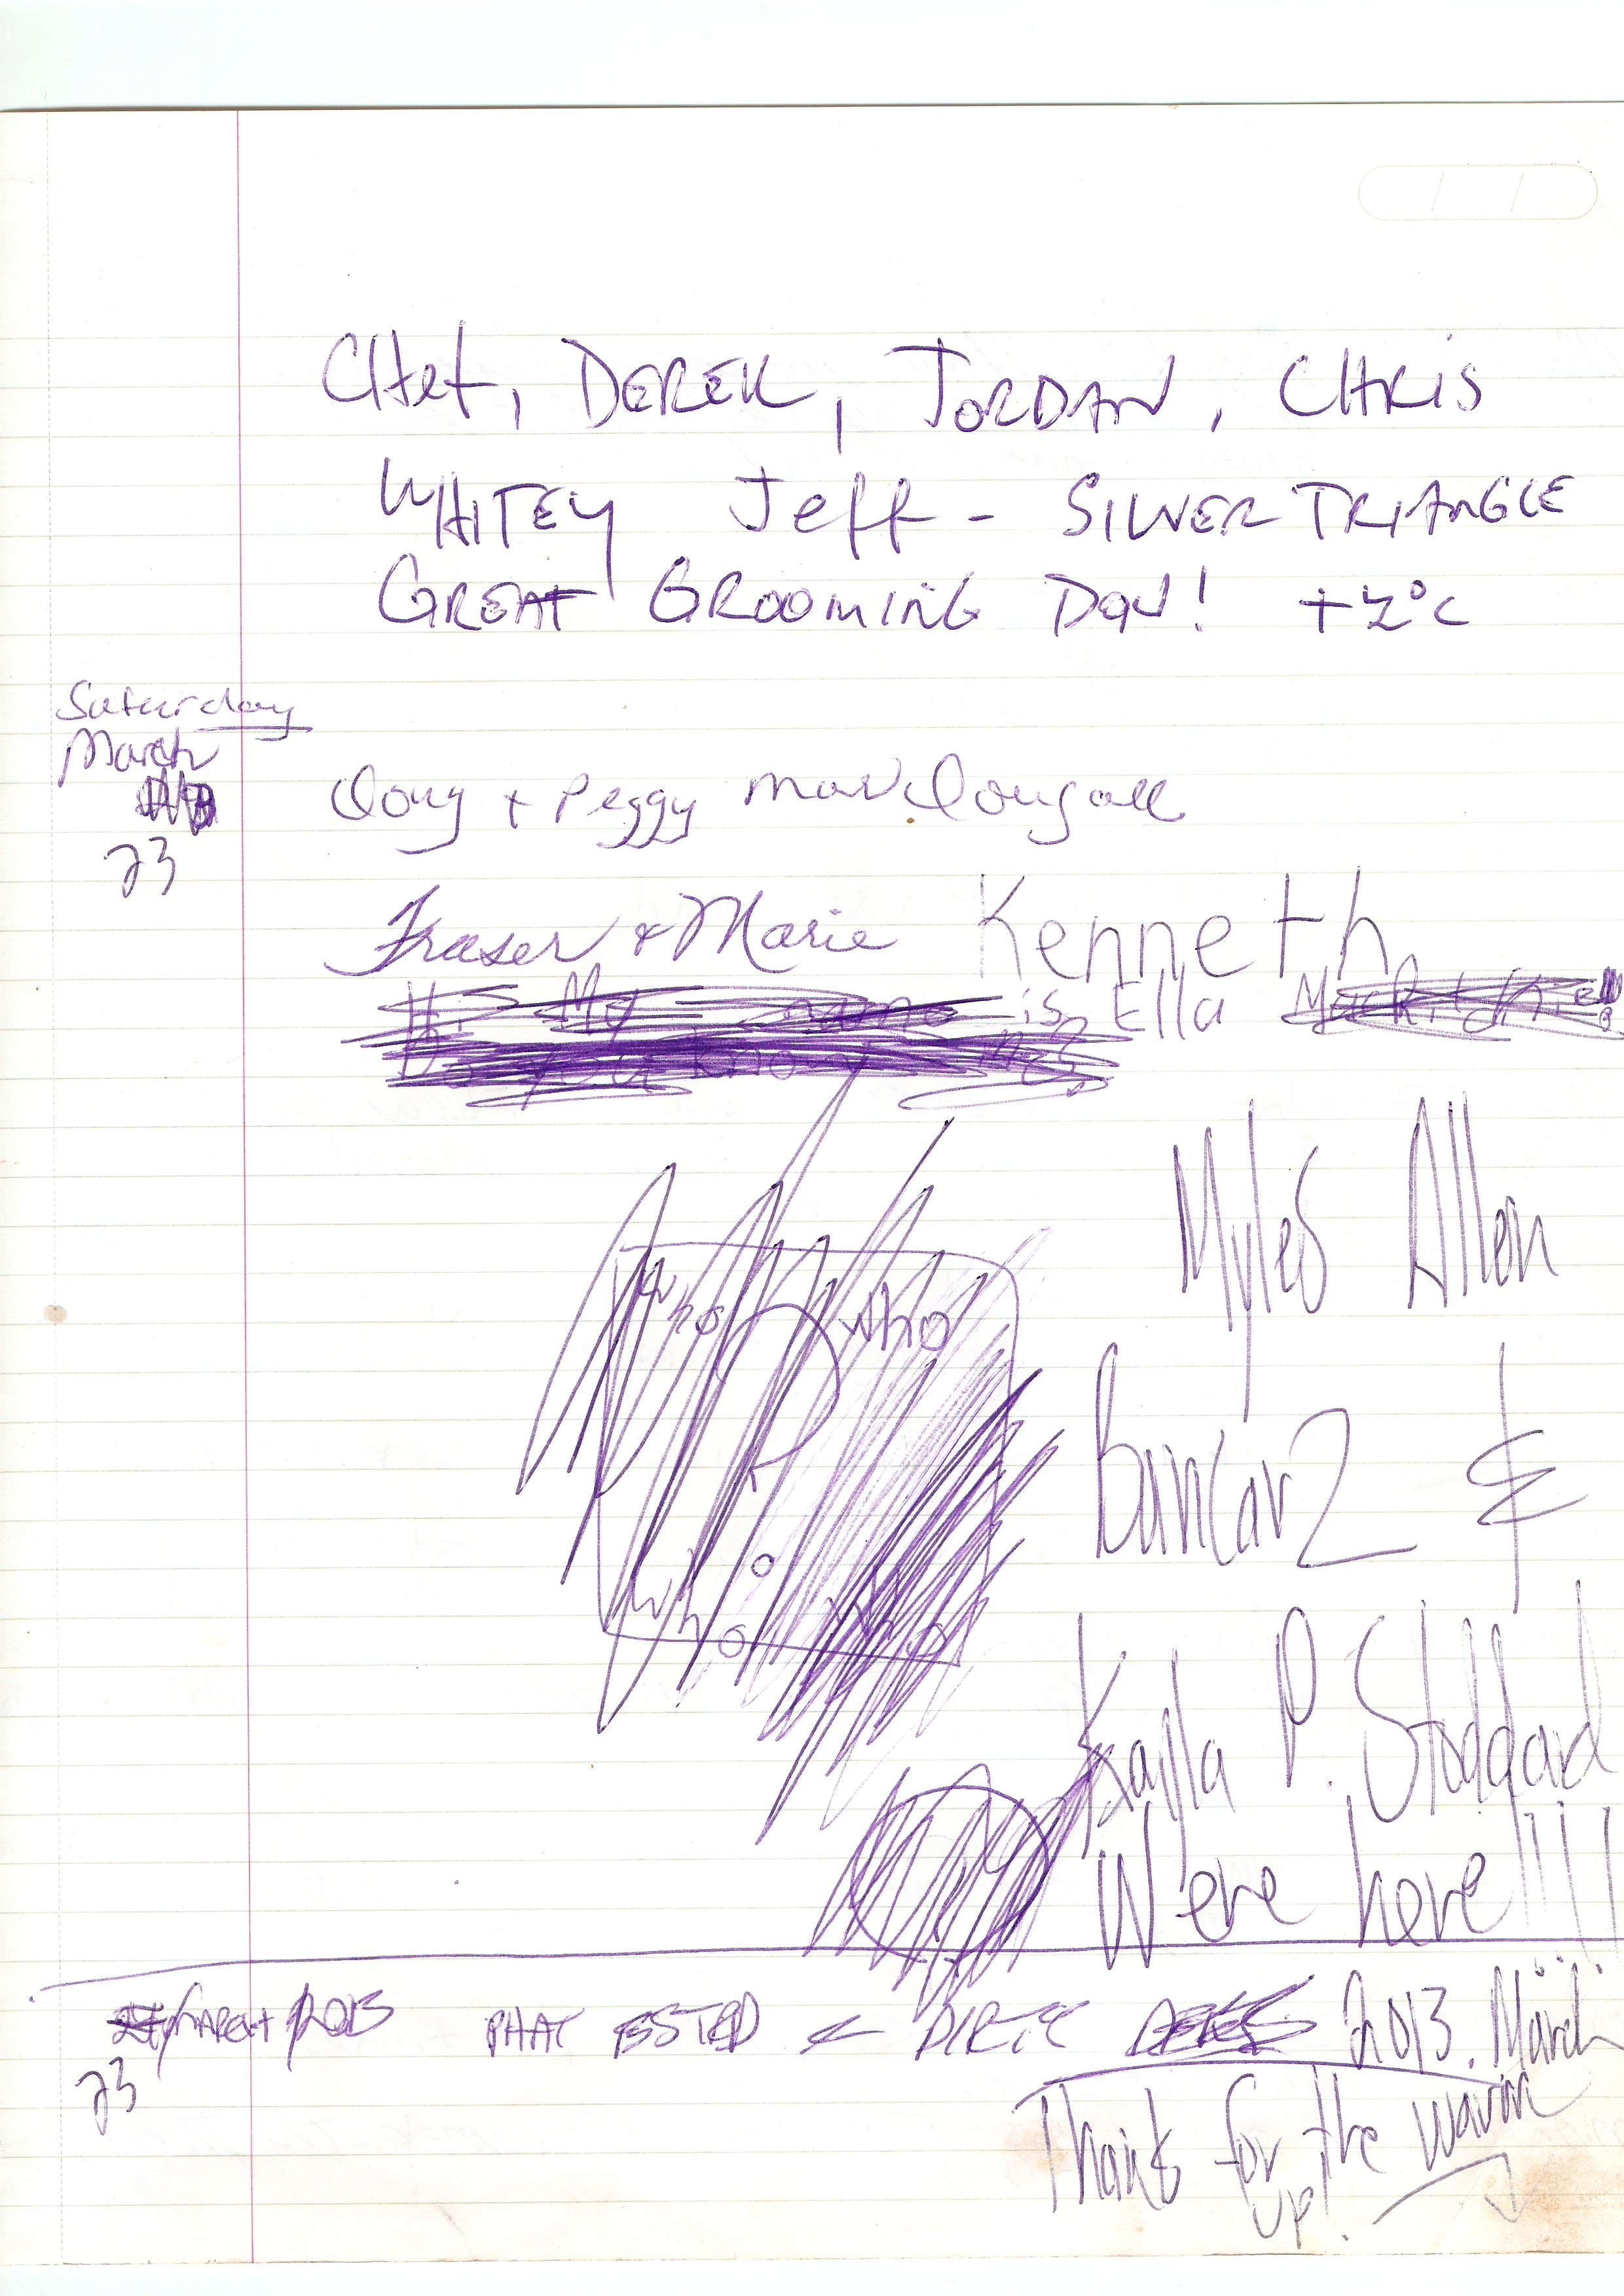 CHet, DEREK, JORDAN, CHRIS
WHITEY Jeff - SILVER TRIANGLE
GREAT GROOMING DAY! +2°C
Saturday
March
23
Doug + Peggy MacDougall
Fraser & Marie Kenneth
Hi My name is Ella
Do you know me?
Myles Allen
who who
&
who who
Kayla P. Stoddard
Were here!!!!
MARCH 2013 PHAT & DIRTY 2013. March
23
Thanks for the warm
up!